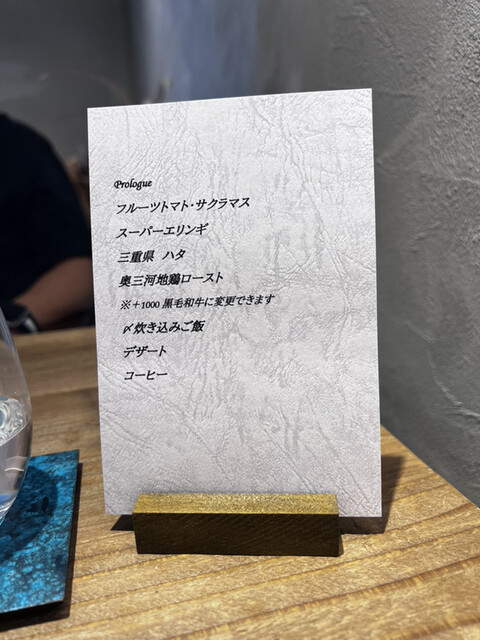 Prologue
フルーツトマト・サクラマス
スーパーエリンギ
三重県 ハタ
奥三河地鶏ロースト
※＋1000 黒毛和牛に変更できます
〆炊き込みご飯
デザート
コーヒー